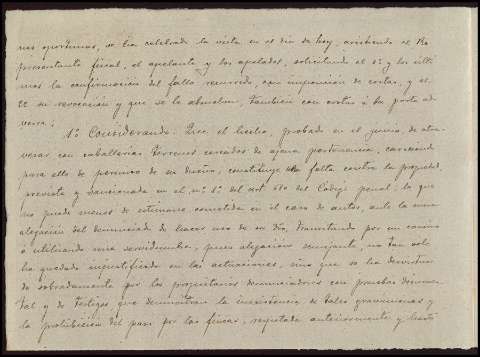 nes oportunas, se ha celebrado la vista en el dia de hoy, asistiendo el Re
presentante fiscal, el apelante y los apelados, solicitando el 1º y los últi
mos la confirmación del fallo recurrido, con imposición de costas, y el
2º su revocación y que se le absuelva, tambien con costas á su parte ad
versa;
1º Considerando: Que el hecho, probado en el juicio, de atra
vesar con caballerías terrenos cercados de ajena pertenencia, careciendo
para ello de permiso de su dueño, constituye una falta contra la propiedad,
prevista y sancionada en el nº 2º del art 610 del Código penal; la que
no puede menos de estimarse cometida en el caso de autos, ante la mera
alegación del denunciado de hacer uso de su dro, transitando por un camino
ó utilizando una servidumbre, pues alegación semejante, no tan solo
ha quedado injustificada en las actuaciones, sino que se ha desvirtua
do sobradamente por los propietarios denunciadores con pruebas documen
tal y de testigos que demuestran la inexistencia de tales gravamenes y
la prohibición del paso por las fincas, respetada anteriormente y hasta